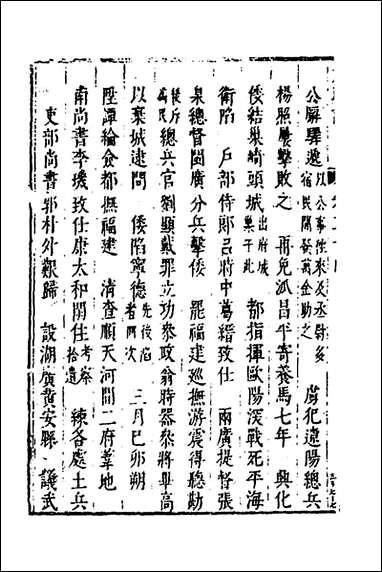 公廨驛遞以公事往來及丞尉多宿民間發萬金助之　虜犯遼陽總兵
楊照屢擊敗之　再免孤昌平寄養馬七年　興化
倭結巢崎頭城出府城巢于此　都指揮歐陽深戰死平海
衛陷　戶部侍郎呂時中葛縉致仕　兩廣提督張
臬總督閩廣分兵擊倭　罷福建巡撫游震得聽勘
後斥為民總兵官劉顯戴罪立功叅政翁時器叅將畢高
以棄城逮問　倭陷寧德先後陷者兩次　三月巳卯朔
陞譚綸僉都撫福建　清查順天河間二府羣地
南尚書李璣致仕康太和閑住考察拾遺　練各處土兵
吏部尚書郭朴外艱歸　設湖廣黃安縣　議武